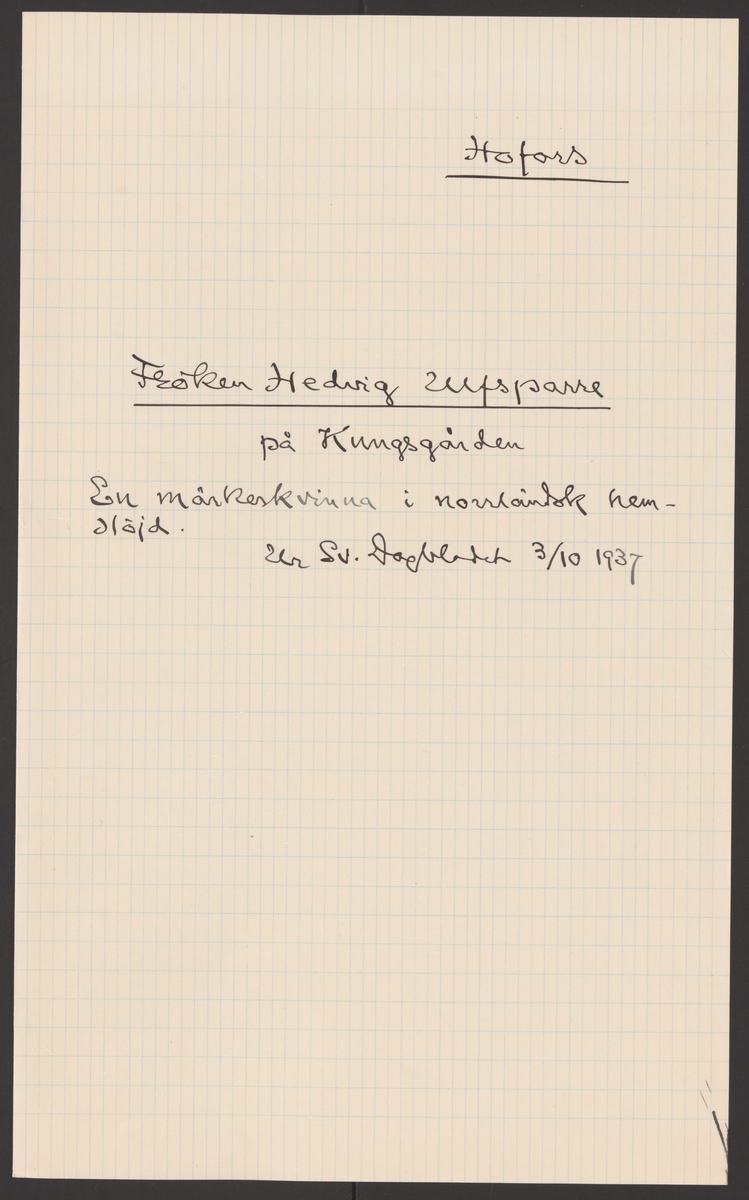 Hofors
Fröken Hedvig Ulfsparre
på Kungsgården
En märkeskvinna i norrländsk hem-
slöjd.
Ur Sv. Dagbladet 3/10 1937